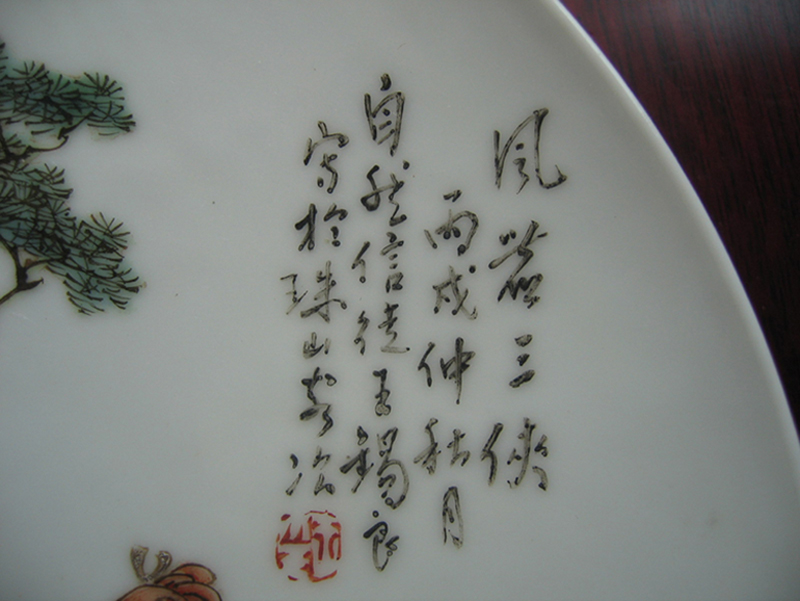 風塵三俠
丙戌仲秋月
自然信徒王錫良
寫於珠山客次